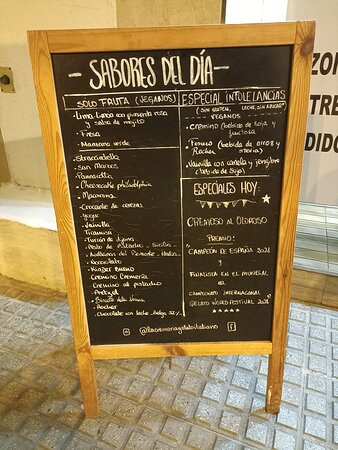 SABORES DEL DÍA
SOLO FRUTA (VEGANOS)
Lima-Limon con pimienta rosa
y salsa de mojito
Fresa
Manzana verde
Stracciatella
San Marcos
Pannacotta
Cheesecake philadelphia
Macarons
Crocante de cerezas
Yogur
Vainilla
Tiramisu
Turrón de Jijona
Pesto de Pistacho - Sicilia -
Avellana del Piemonte - Italia -
Bacio
Kinder Bueno
Cremino Cremeria
Cremino al pistacho
Pretzel
Rocher
Chocolate con leche Belga 32%
ESPECIAL INTOLERANCIAS
(SIN GLUTEN, LECHE, SIN AZUCAR)
VEGANOS
CREMINO (bebida de soja y
fructosa
Rocher (bebida de arroz y
stevia)
Vainilla con canela y jengibre
(bebida de Soja)
ESPECIALES HOY:
CREMOSO AL OLOROSO
PREMIO:
CAMPEÓN DE ESPAÑA 2021
Y
FINALISTA EN EL MUNDIAL
CAMPEONATO INTERNACIONAL
GELATO WORLD FESTIVAL 2021
ZON
TRE
DIDO